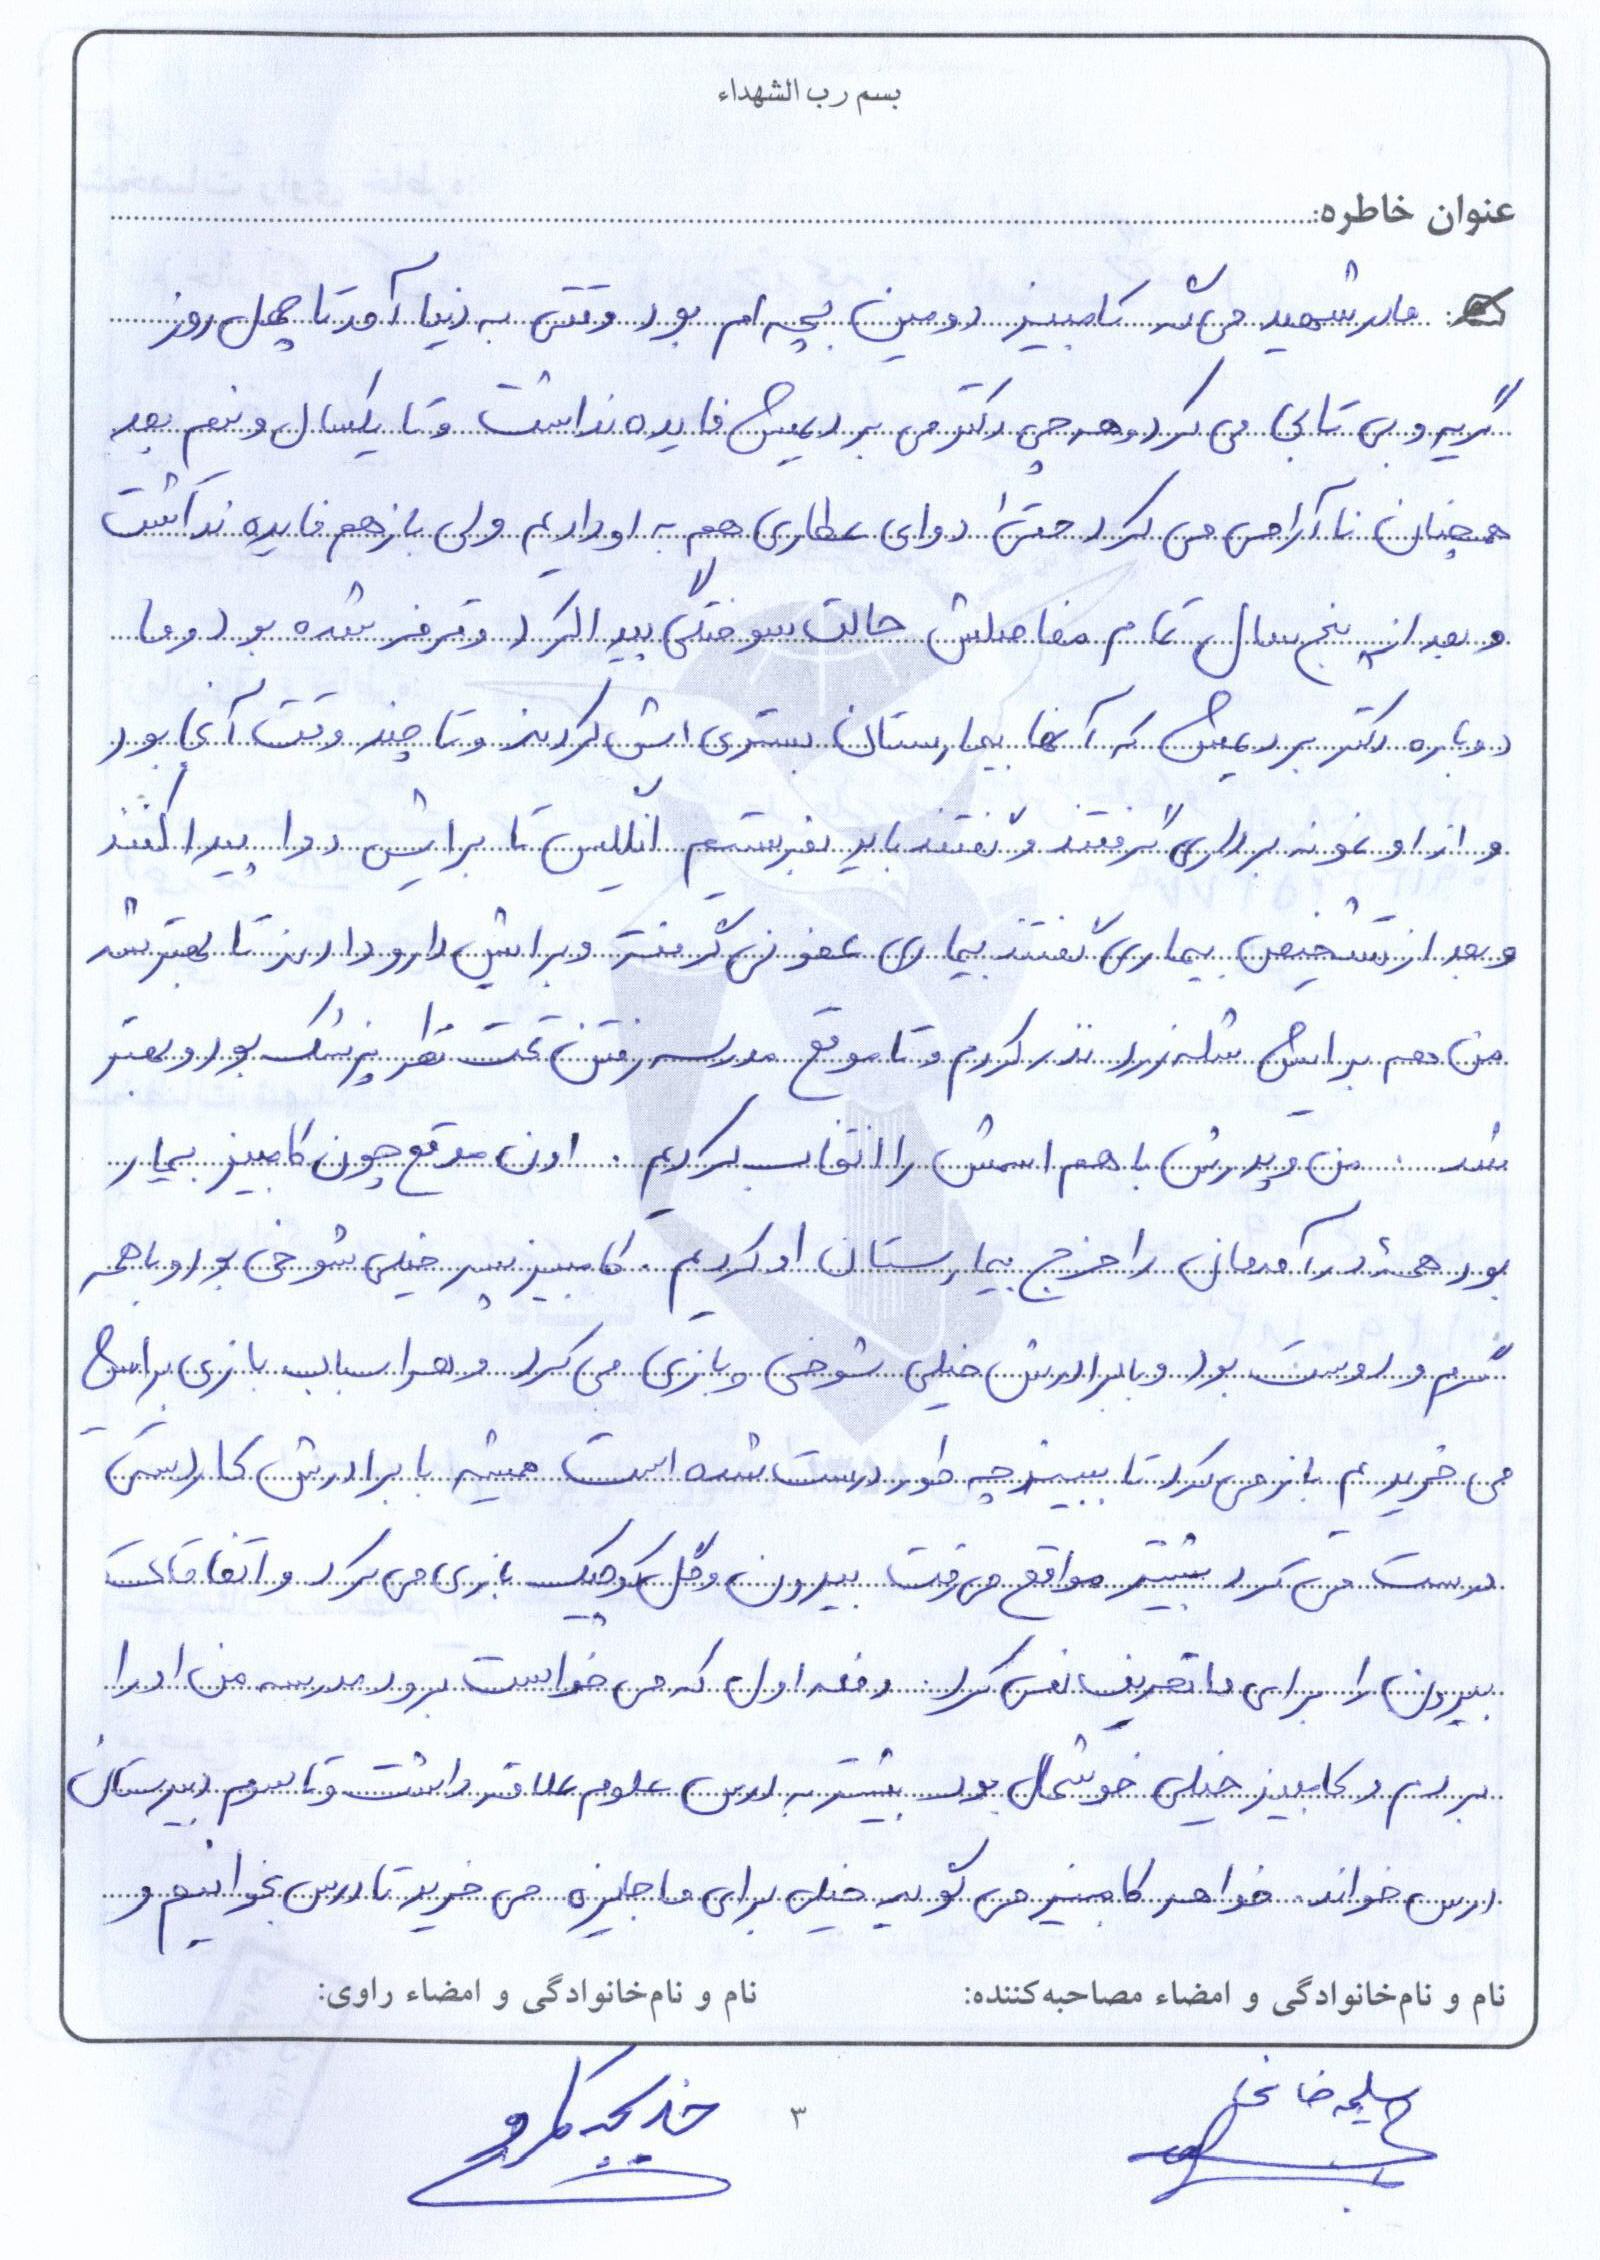 بسم رب الشهداء
عنوان خاطره:
مادر شهید می گه کامبیز دومین بچه ام بود وقتی به دنیا آمد تا چهل روز
گریه و بی تابی می کرد و هر چی دکتر می بردیمش فایده نداشت و تا یکسال و نیم بعد
همچنان نا آرامی می کرد حتی دوای عطاری هم به او دادیم ولی باز هم فایده نداشت
و بعد از پنج سال تمام مفاصلش حالت سوختگی پیدا کرد و قرمز شده بود و ما
دوباره دکتر بردیمش که آنها بیمارستان بستری اش کردند و تا چند وقت آنجا بود
و از او نمونه برداری گرفتند و گفتند باید بفرستیم انگلیس تا برایش دوا پیدا کنند
و بعد از تشخیص بیماری گفتند بیماری عفونی گرفته و برایش دارو دادند تا بهتر شد
من هم برایش شله زرد نذر کردم و تا موقع مدرسه رفتن تحت نظر پزشک بود و بهتر
شد . من و پدرش با هم اسمش را انتخاب کردیم . اون موقع چون کامبیز بیمار
بود همه درآمدمان را خرج بیمارستان او کردیم . کامبیز پسر خیلی شوخی بود و با همه
گرم و دوست بود و با برادرش خیلی شوخی و بازی می کرد و هر اسباب بازی براش
می خریدیم باز می کرد تا ببیند چه طور درست شده است همیشه با برادرش کاردستی
درست می کرد بیشتر مواقع می رفت بیرون و گل کوچیک بازی می کرد و اتفاقات
بیرون را برای ما تعریف نمی کرد . دفعه اول که می خواست برود مدرسه من او را
بردم و کامبیز خیلی خوشحال بود بیشتر به درس علوم علاقه داشت و تا سوم دبیرستان
درس خواند . خواهر کامبیز می گوید خیلی برای ما جایزه می خرید تا درس بخوانیم و
نام و نام‌خانوادگی و امضاء مصاحبه‌کننده: نام و نام‌خانوادگی و امضاء راوی:
۳